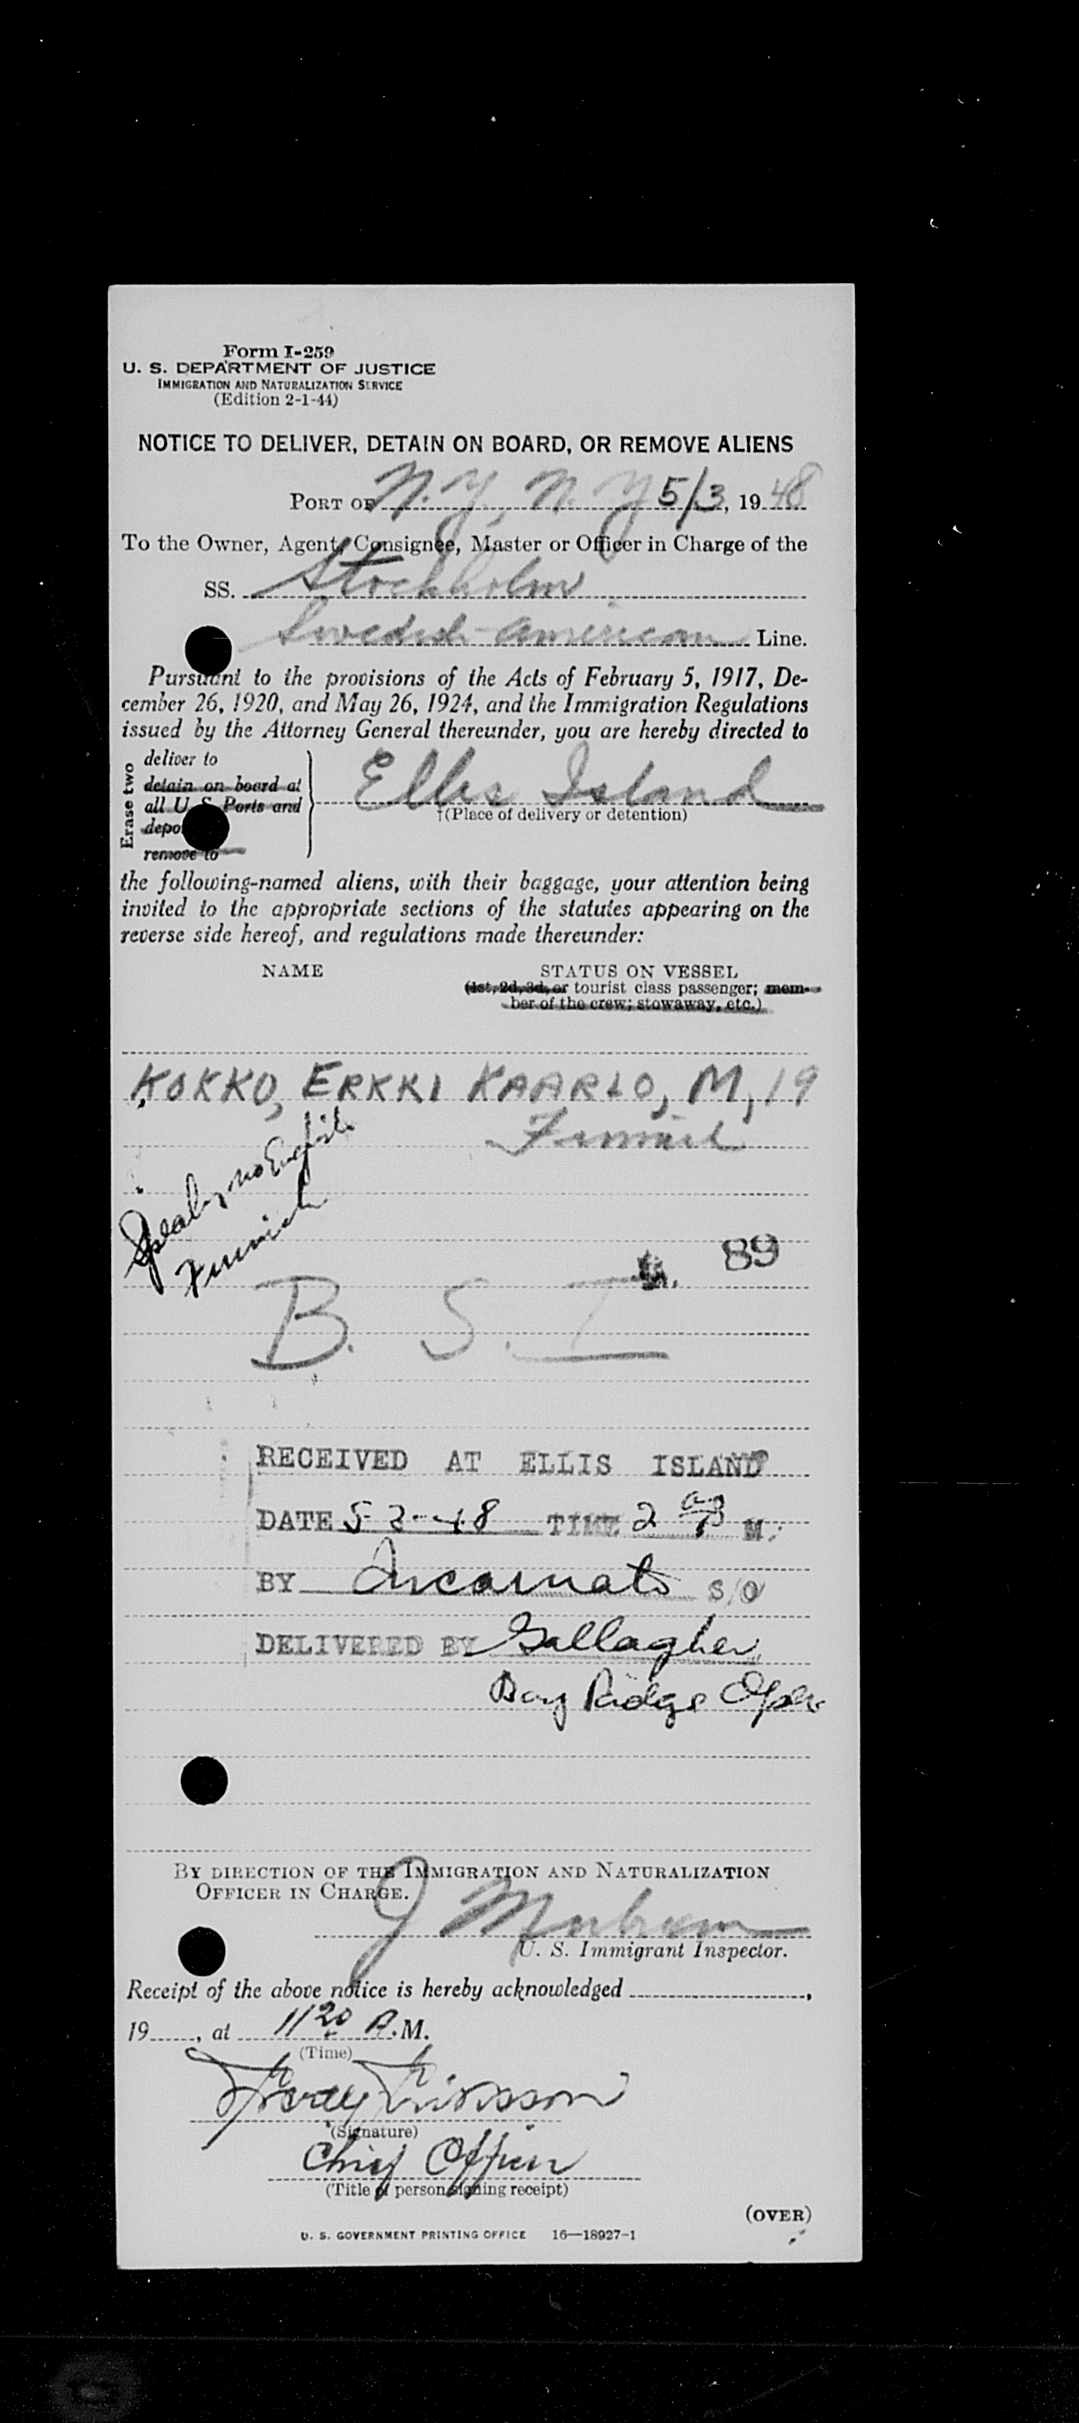 Form I-259
U. S. DEPARTMENT OF JUSTICE
IMMIGRATION AND NATURALIZATION SERVICE
(Edition 2-1-44)
NOTICE TO DELIVER, DETAIN ON BOARD, OR REMOVE ALIENS
PORT OF N.Y., N.Y 5/3, 1948
To the Owner, Agent, Consignee, Master or Officer in Charge of the
SS. Stockholm
Swedish-American Line.
Pursuant to the provisions of the Acts of February 5, 1917, De-
cember 26, 1920, and May 26, 1924, and the Immigration Regulations
issued by the Attorney General thereunder, you are hereby directed to
Erase two
deliver to
detain on board at
all U. S. Ports and
depo
remove to
Ellis Island
†(Place of delivery or detention)
the following-named aliens, with their baggage, your attention being
invited to the appropriate sections of the statutes appearing on the
reverse side hereof, and regulations made thereunder:
NAME STATUS ON VESSEL
(1st, 2d, 3d, or tourist class passenger; mem-
ber of the crew; stowaway, etc.)
KOKKO, ERKKI KAARLO, M, 19
Finnish
Speaks no English
Finnish
89
B. S. I
RECEIVED AT ELLIS ISLAND
DATE 5-3-48 TIME 2 P M.
BY Incarnato S/O
DELIVERED BY Gallagher
Bay Ridge Oper
BY DIRECTION OF THE IMMIGRATION AND NATURALIZATION
OFFICER IN CHARGE.
J
U. S. Immigrant Inspector.
Receipt of the above notice is hereby acknowledged,
19, at 11 20 A.M.
(Time)
(Signature)
Chief Officer
(Title of person signing receipt)
(OVER)
U. S. GOVERNMENT PRINTING OFFICE 16—18927-1